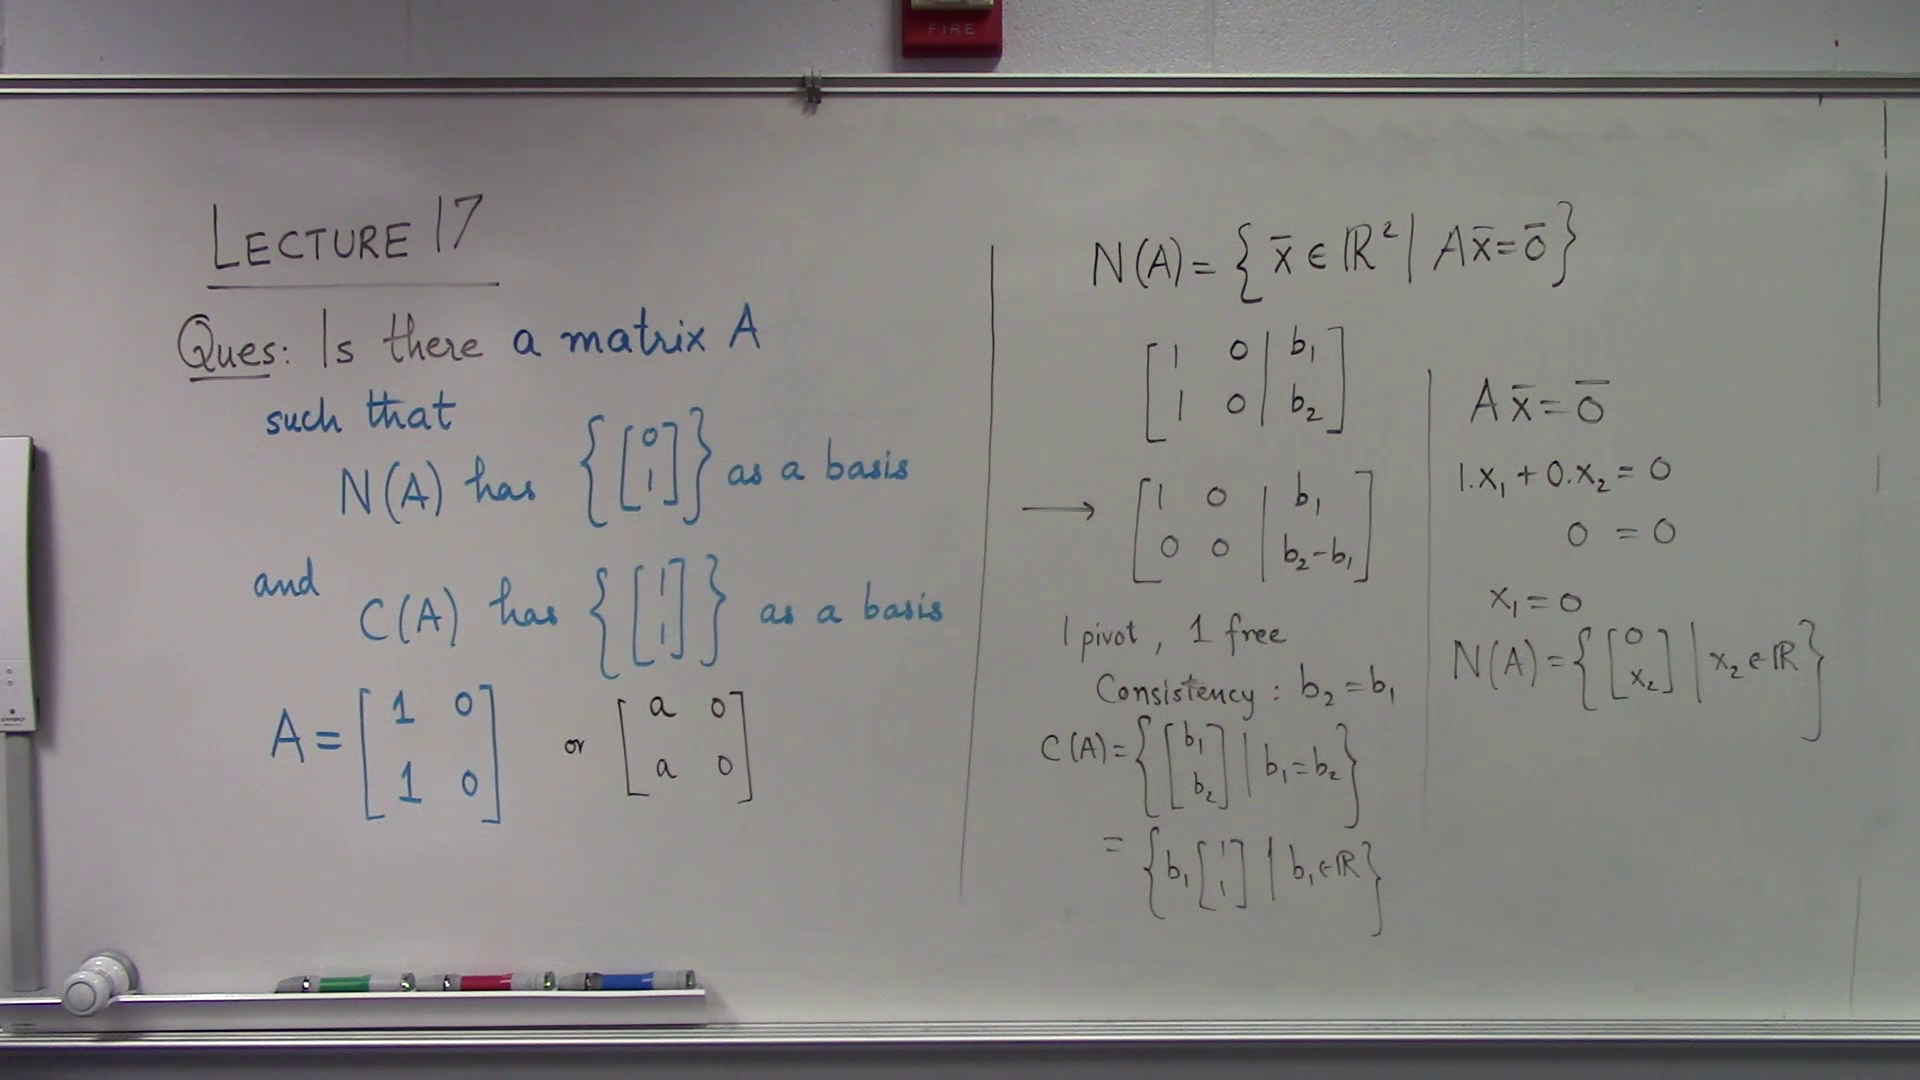 FIRE
LECTURE 17
Ques: Is there a matrix A
such that
N(A) has {[0 1]} as a basis
and C(A) has {[1 1]} as a basis
A = [1 0
1 0] or [a 0
a 0]
N(A) = { x̄ ∈ ℝ² | Ax̄ = ō }
[1 0 | b₁
1 0 | b₂]
→ [1 0 | b₁
0 0 | b₂-b₁]
1 pivot, 1 free
Consistency: b₂ = b₁
C(A) = {[b₁ b₂] | b₁ = b₂}
= {b₁ [1 1] | b₁ ∈ ℝ}
Ax̄ = ō
1.x₁ + 0.x₂ = 0
0 = 0
x₁ = 0
N(A) = {[0 x₂] | x₂ ∈ ℝ}